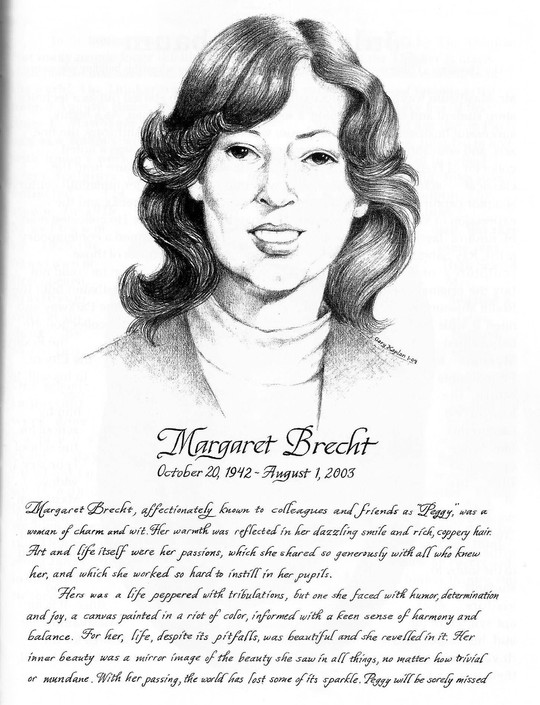 Gary Kaplan
Margaret Brecht
October 20, 1942 - August 1, 2003
Margaret Brecht, affectionately known to colleagues and friends as "Peggy," was a
woman of charm and wit. Her warmth was reflected in her dazzling smile and rich, coppery hair.
Art and life itself were her passions, which she shared so generously with all who knew
her, and which she worked so hard to instill in her pupils.
Hers was a life peppered with tribulations, but one she faced with humor, determination
and joy, a canvas painted in a riot of color, informed with a keen sense of harmony and
balance. For her, life, despite its pitfalls, was beautiful and she revelled in it. Her
inner beauty was a mirror image of the beauty she saw in all things, no matter how trivial
or mundane. With her passing, the world has lost some of its sparkle. Peggy will be sorely missed